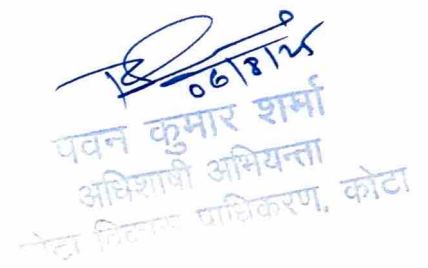 06/8/25
पवन कुमार शर्मा
अधिशाषी अभियन्ता
कोटा विकास प्राधिकरण, कोटा